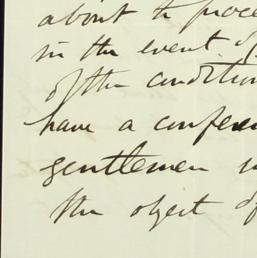 about to proce
in the event of
of the condition
have a confere
gentlemen
the object of